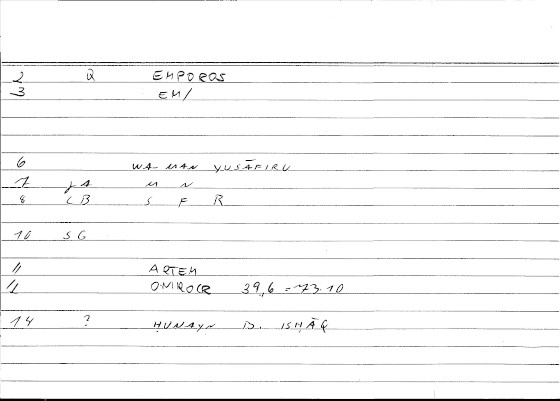 2 Q EMPOROS
3 EM/
6 WA-MAN YUSĀFIRU
7 JA M N
8 CB S F R
10 SG
11 ARTEM
12 ONIROCR 39,6 = 73.10
14 ? ḤUNAYN B. ISḤĀQ